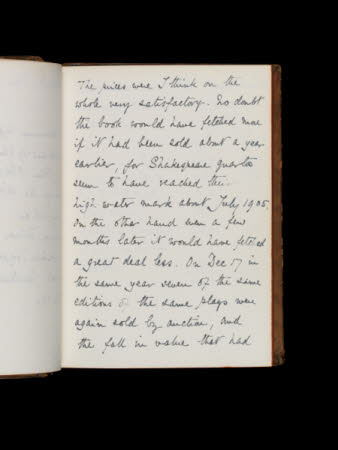 The prices were I think on the
whole very satisfactory. No doubt
the book would have fetched more
if it had been sold about a year
earlier, for Shakespeare quartos
seem to have reached their
high water mark about July 1905.
On the other hand even a few
months later it would have fetched
a great deal less. On Dec 17 in
the same year seven of the same
editions of the same plays were
again sold by auction, and
the fall in value that had